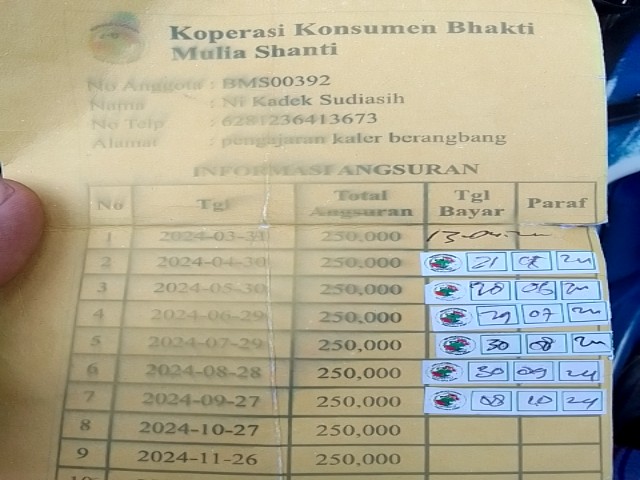 Koperasi Konsumen Bhakti
Mulia Shanti
No Anggota : BMS00392
Nama : Ni Kadek Sudiasih
No Telp : 6281236413673
Alamat : pengajaran kaler berangbang
INFORMASI ANGSURAN
No Tgl Total Angsuran Tgl Bayar Paraf
1 2024-03-31 250,000
2 2024-04-30 250,000 21
3 2024-05-30 250,000 28 06 24
4 2024-06-29 250,000 29 07 24
5 2024-07-29 250,000 30 08 24
6 2024-08-28 250,000 30 09 24
7 2024-09-27 250,000 08 10 24
8 2024-10-27 250,000
9 2024-11-26 250,000